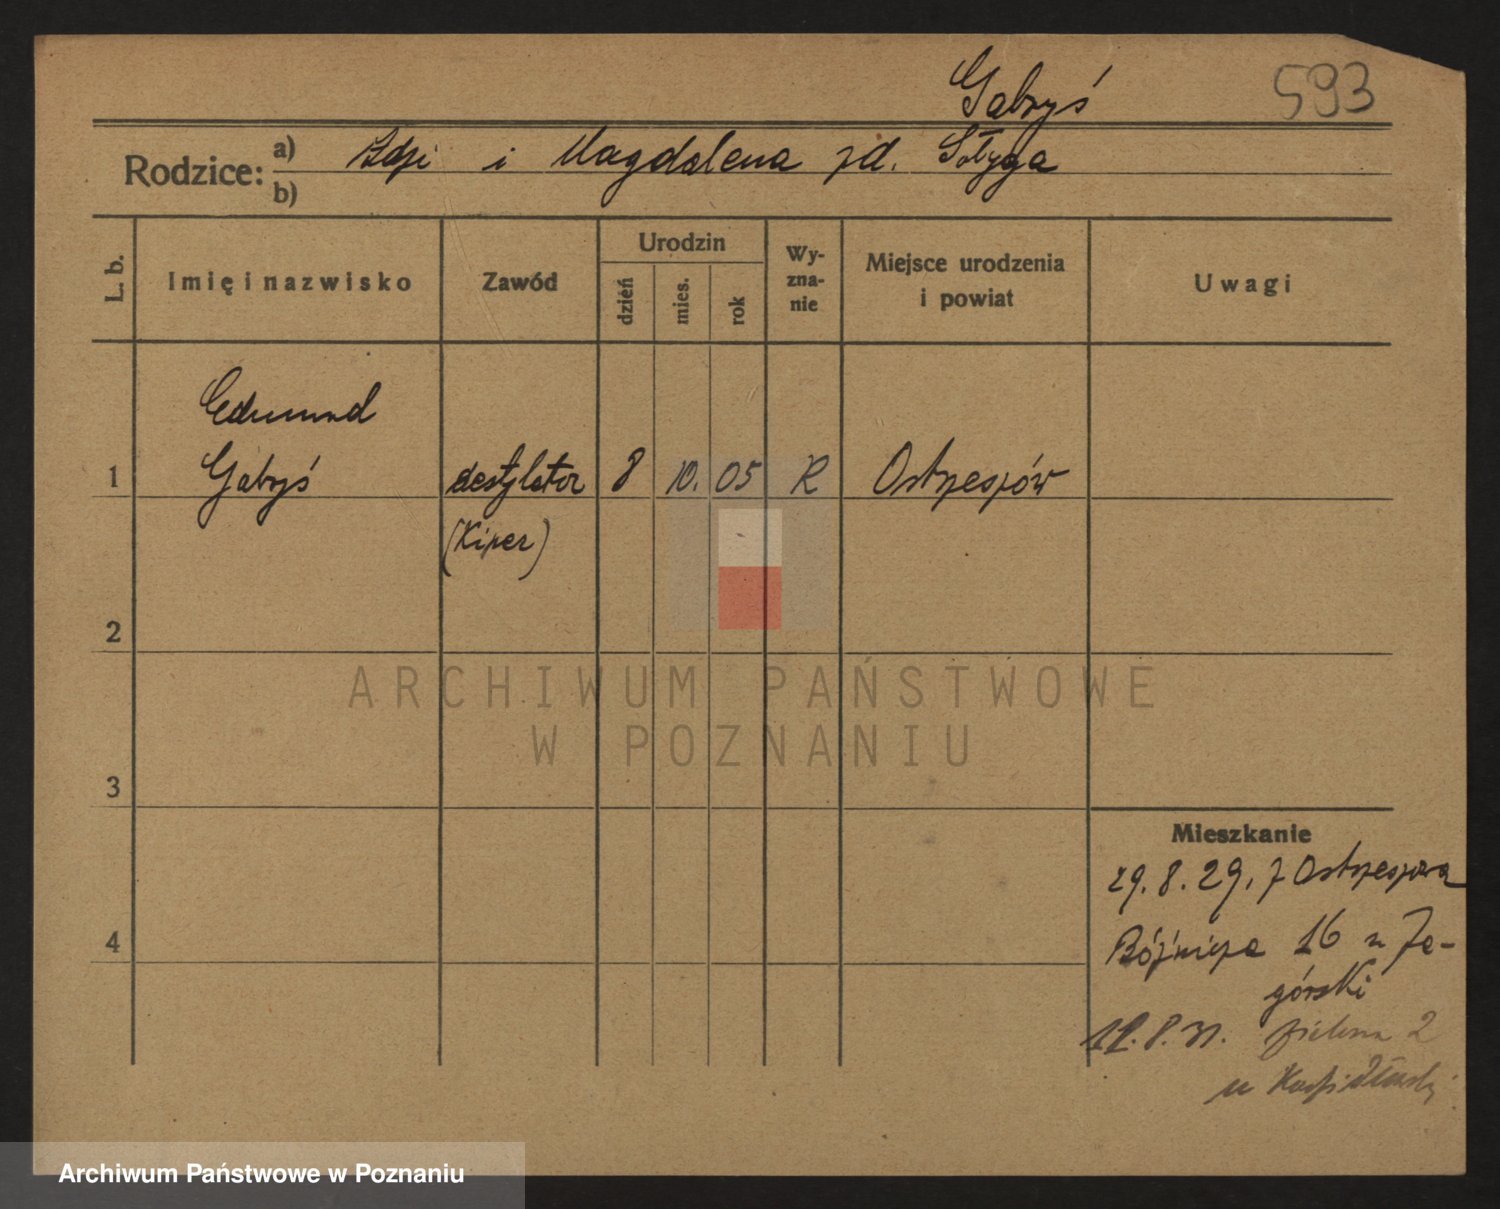 Gabryś
593
Rodzice: a) i Magdalena zd. Sołyga
b)
L. b.
Imię i nazwisko
Zawód
Urodzin
dzień
mies.
rok
Wy-
zna-
nie
Miejsce urodzenia
i powiat
Uwagi
Edmund
1 Gabryś destylator 8 10. 05 R Ostrzeszów
(Kiper)
2
3
4
ARCHIWUM PAŃSTWOWE
W POZNANIU
Mieszkanie
29. 8. 29. z Ostrzeszowa
16 u Za-
górski
8. 31. Zielona 2
u
Archiwum Państwowe w Poznaniu